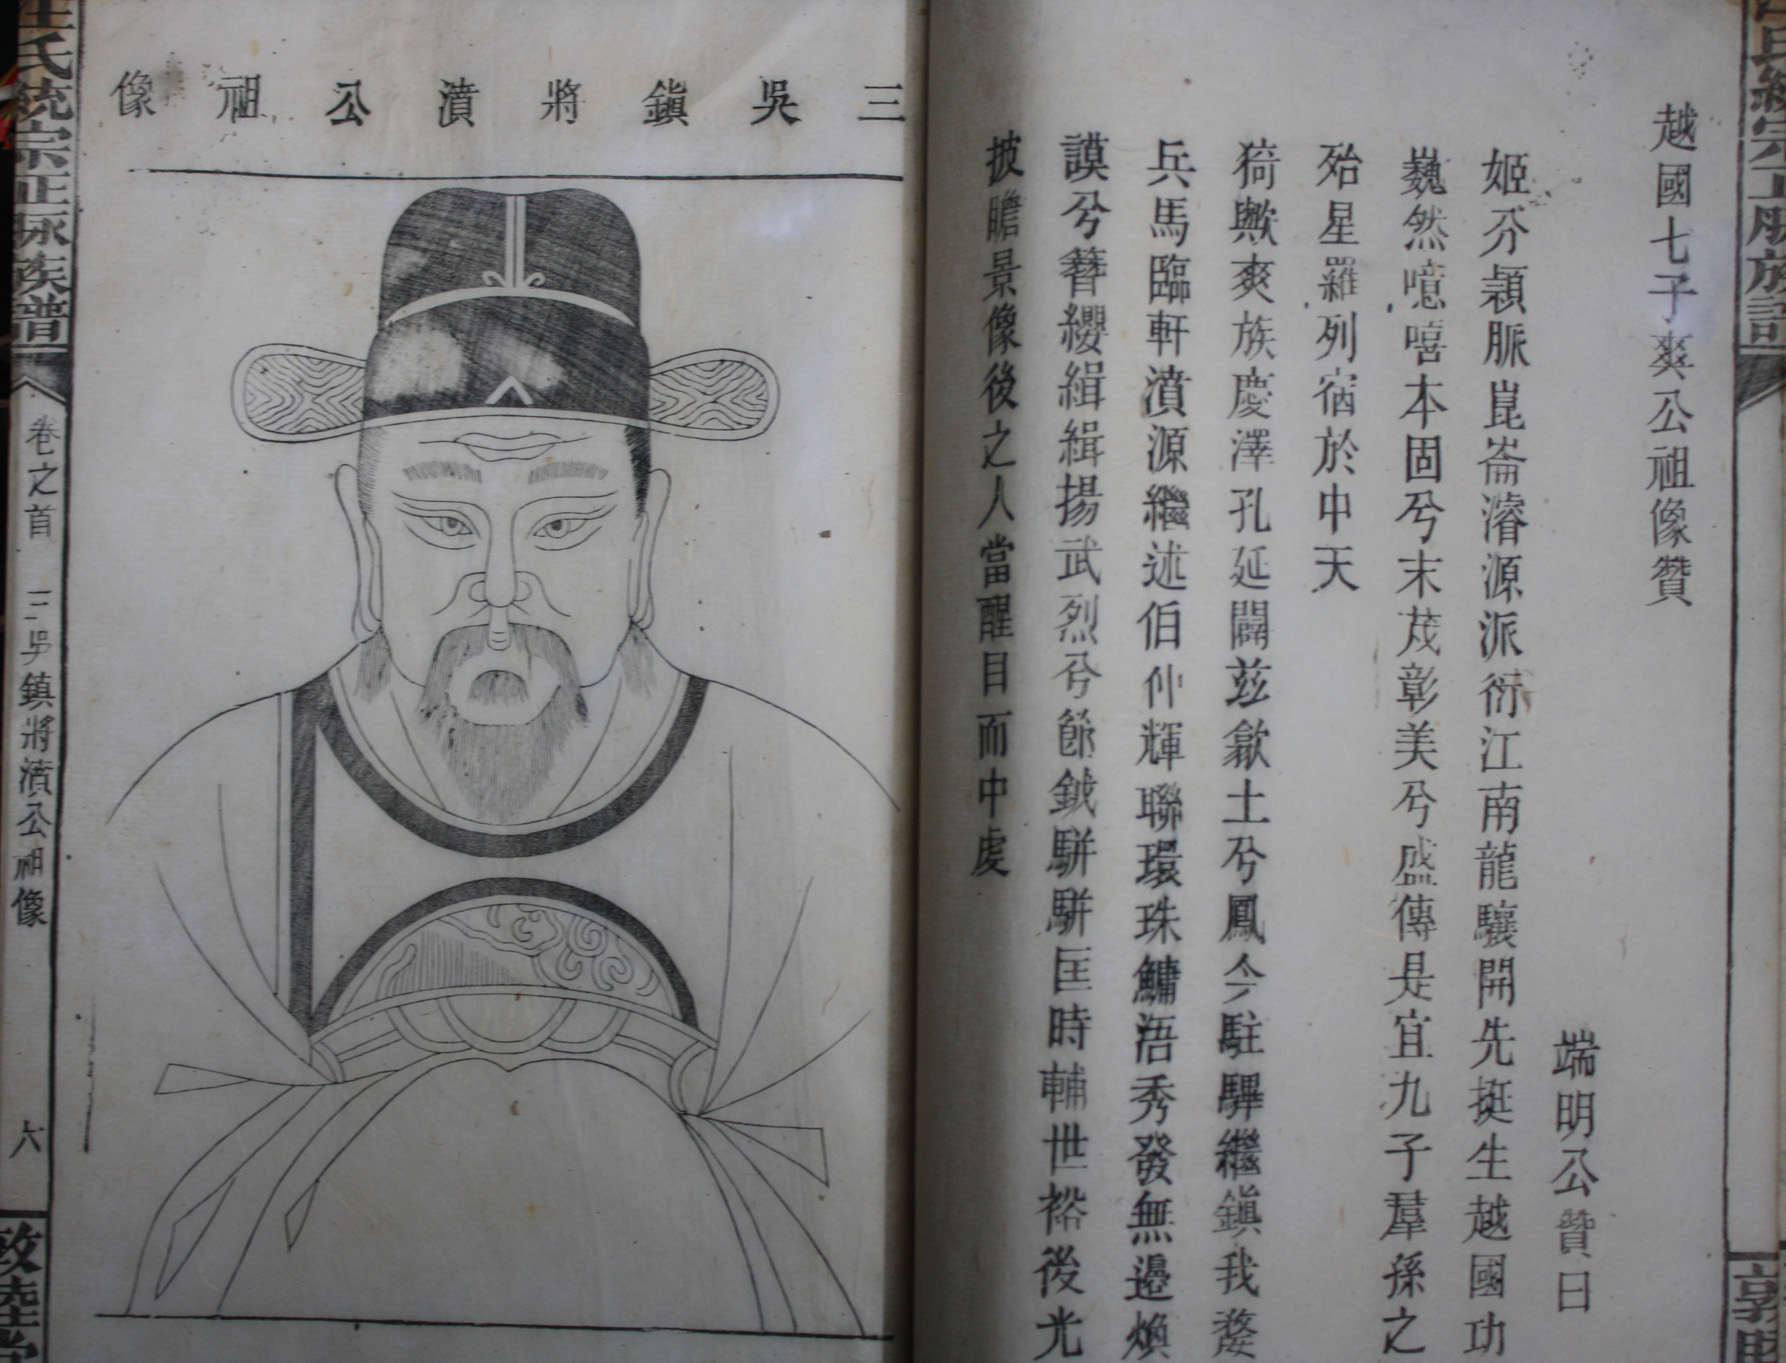 越國七子爽公祖像贊
端明公贊曰
姬分穎脈崑崙濬源派衍江南龍驤開先挺生越國功
巍然噫嘻本固兮末茂彰美兮盛傳是宜九子羣孫之
殆星羅列宿於中天
猗歟爽族慶澤孔延闢茲歙土兮鳳今駐驆繼鎮我婺
兵馬臨軒濆源繼述伯仲輝聯環珠鱅浯秀發無邊煥
謨兮簪纓緝緝揚武烈兮節鉞駢駢匡時輔世裕後光
披瞻景像後之人當醒目而中虔
三吳鎮將濆公祖像
汪氏統宗正脉族譜
卷之首
三吳鎮將濆公祖像
六
敦睦堂